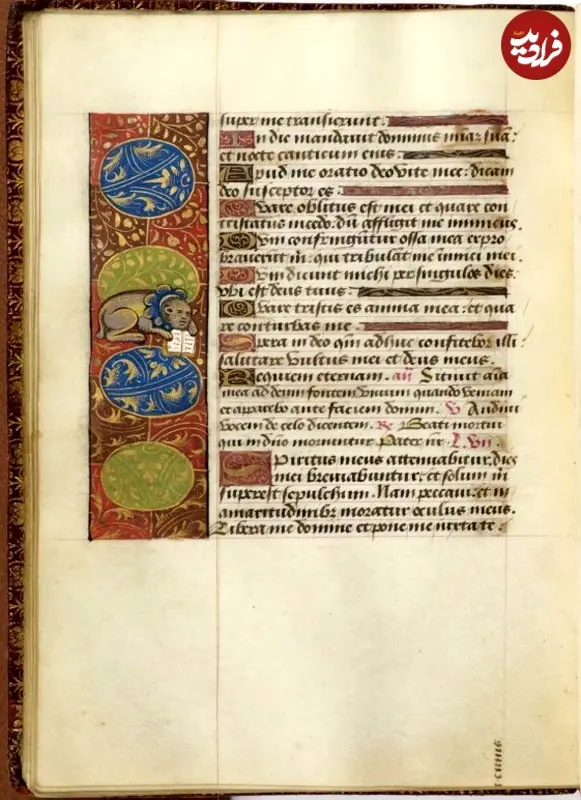 فرادید
super me transierunt.
In die mandavit dominus miãz suã:
et nocte canticum eius.
Apud me oratio deo vite mee: dicam
deo susceptor es.
Quare oblitus est mei et quare con
tristatus incedo: dũ affligit me inimicus.
Dum confringũtur ossa mea expro
braverunt m̃: qui tribulãt me inimici mei.
Dum dicunt michi per singulos dies:
vbi est deus tuus:
Quare tristis es anima mea: et qua
re conturbas me.
Spera in deo qm̃ adhuc confitebor illi:
salutare vultus mei et deus meus.
Requiem eternam. añ Sitivit aĩa
mea ad deum fontem vivum quando veniam
et apparebo ante faciem domini. V Audivi
vocem de celo dicentem. Re Beati mortui
qui in dño moriuntur. Pater nr̃. L. vii.
Spiritus meus attenuabitur, dies
mei breviabuntur: et solum m̃
superest sepulchrum. Nam peccavi: et in
amaritudinibz moratur oculus meus.
Libera me domine et pone me iuxta te: